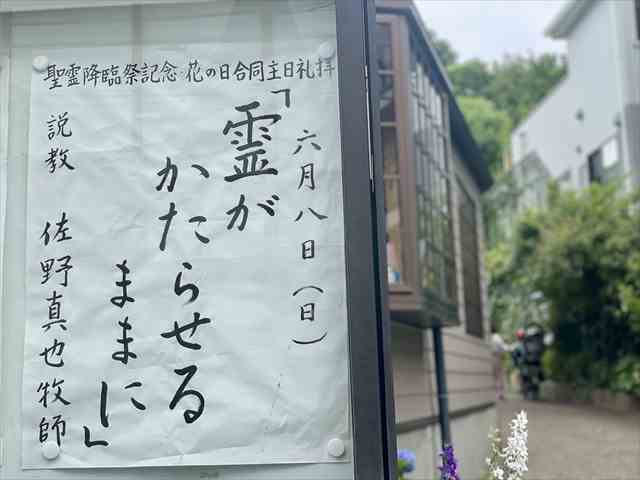 聖霊降臨祭記念・花の日合同主日礼拝
六月八日(日)
「霊が
かたらせる
ままに」
説教 佐野真也牧師